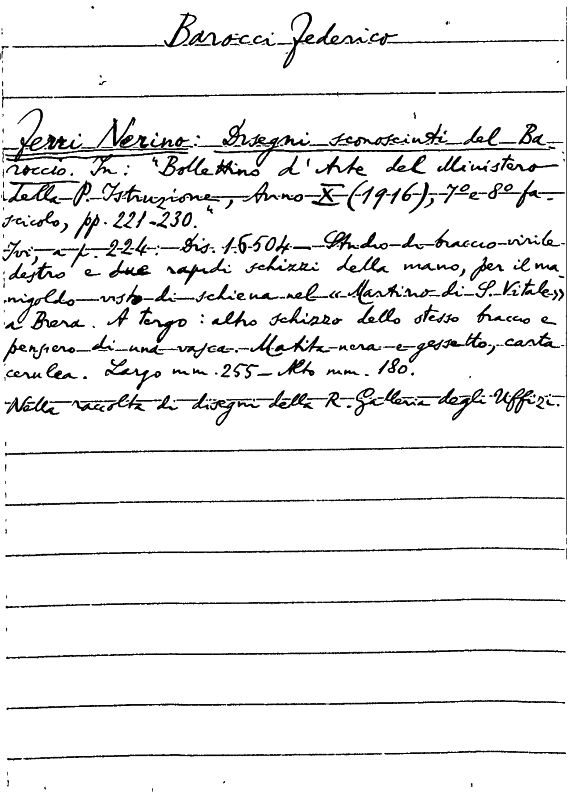 Barocci Federico
Ferri Nerino: Disegni sconosciuti del Ba-
roccio. In: "Bollettino d'Arte del Ministero
della P. Istruzione, Anno X (1916), 7º e 8º fa-
scicolo, pp. 221-230."
Ivi, a p. 224: Dis. 16504 - Studio di braccio virile
destro e due rapidi schizzi della mano, per il ma-
nigoldo visto di schiena nel «Martirio di S. Vitale»
a Brera. A tergo: altro schizzo dello stesso braccio e
pensiero di una vasca. Matita nera e gessetto, carta
cerulea. Largo mm. 255 - Alto mm. 180.
Nella raccolta di disegni della R. Galleria degli Uffizi.